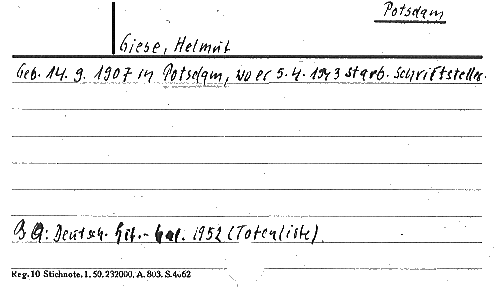 Potsdam
Giese, Helmut
Geb. 14. 9. 1907 in Potsdam, wo er 5. 4. 1943 starb. Schriftsteller.
BQ: Deutsch. Lit.-Kal. 1952 (Totenliste).
Reg. 10 Stichnote. 1. 50. 232000. A. 803. S. 4062